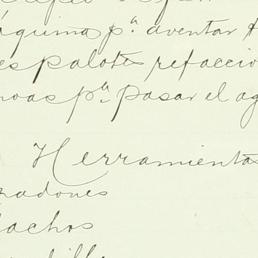 áquina pª aventar
espalotes refaccio
noas pª pasar el ag
Herramientas
zadones
achos